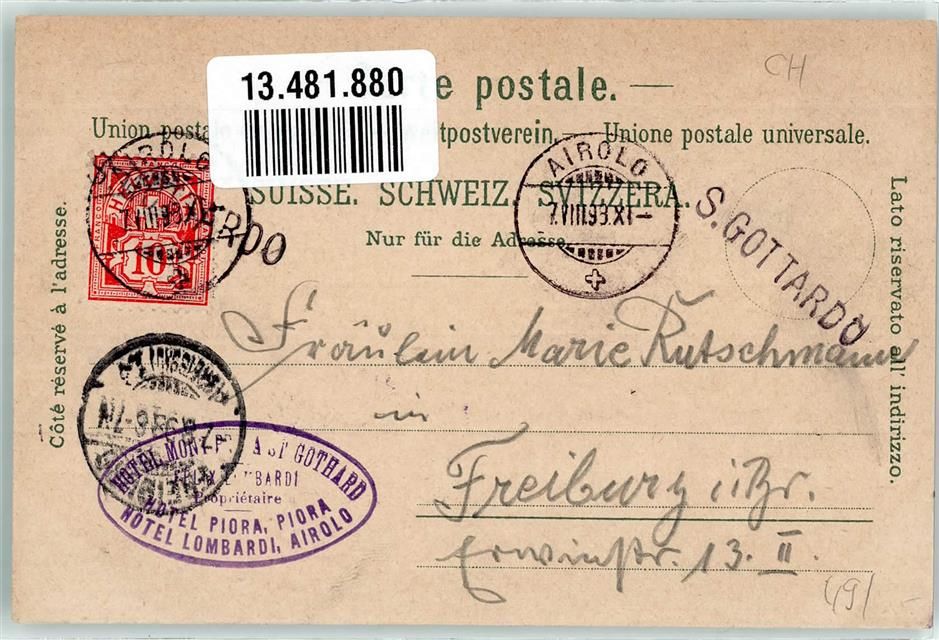 13.481.880
CH
e postale. —
Union posta tpostverein. — Unione postale universale.
SUISSE. SCHWEIZ. SVIZZERA.
Nur für die Adresse.
Côté réservé à l'adresse.
Lato riservato all'indirizzo.
10
AIROLO
7.VIII.93.XI–
S. GOTTARDO
RDO
Fräulein Marie Rutschmann
in
Freiburg i. Br.
Erwinstr. 13. II.
HOTEL GOTHARD
Propriétaire
HOTEL PIORA, PIORA
HOTEL LOMBARDI, AIROLO